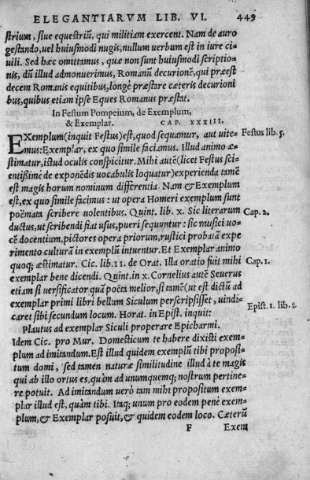 ELEGANTIARVM LIB. VI. 449
strium, siue equestriũ, qui militiam exercent. Nam de auro
gestando, vel huiusmodi nugis, nullum uerbum est in iure ci-
uili. Sed hæc omittamus, quæ non sunt huiusmodi scriptio-
nis, dũ illud admonuerimus, Romanũ decurionẽ, qui præest
decem Romanis equitibus, longè præstare cæteris decurioni
bus, quibus etiam ipse Eques Romanus præstat.
In Festum Pompeium, de Exemplum,
& Exemplar. CAP. XXXIII.
EXemplum (inquit Festus) est, quod sequamur, aut uite- Festus lib. 5.
mus: Exemplar, ex quo simile faciamus. Illud animo æ-
stimatur, istud oculis conspicitur. Mihi autẽ (licet Festus sci-
entissimè de exponẽdis uocabulis loquatur) experienda tamẽ
est magis horum nominum differentia. Nam & Exemplum
est, ex quo simile facimus: ut opera Homeri exemplum sunt
poëmata scribere uolentibus. Quint. lib. x. Sic literarum Cap. 2.
ductus, ut scribendi fiat usus, pueri sequuntur: sic musici uo-
cẽ docentium, pictores opera priorum, rustici probatã expe
rimento culturã in exemplũ intuentur. Et Exemplar animo
quoq; æstimatur. Cic. lib. 11. de Orat. Illa oratio fuit mihi Cap. 1.
exemplar bene dicendi. Quint. in x. Cornelius autẽ Seuerus
etiam si uersificator quàm poëta melior, si tamẽ (ut est dictũ) ad
exemplar primi libri bellum Siculum perscripsisset, uindi-
caret sibi secundum locum. Horat. in Epist. inquit: Epist. 1. lib. 2.
Plautus ad exemplar Siculi properare Epicharmi.
Idem Cic. pro Mur. Domesticum te habere dixisti exem-
plum ad imitandum. Est illud quidem exemplũ tibi proposi-
tum domi, sed tamen naturæ similitudine illud à te magis
qui ab illo ortus es, quàm ad unumquemq; nostrum pertine-
re potuit. Ad imitandum uerò tam mihi propositum exem-
plar illud est, quàm tibi. Itaq; unum pro eodem penè exem-
plum, & Exemplar posuit, & quidem eodem loco. Cæterũ
F Exem